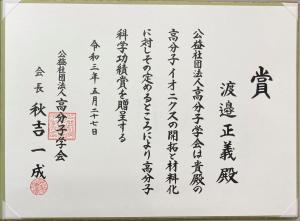 賞
渡邉正義殿
公益社団法人高分子学会は貴殿の
高分子イオニクスの開拓と材料化
に対しその定めるところにより高分子
科学功績賞を贈呈する
令和三年五月二十七日
公益社団法人高分子学会
会長 秋吉一成